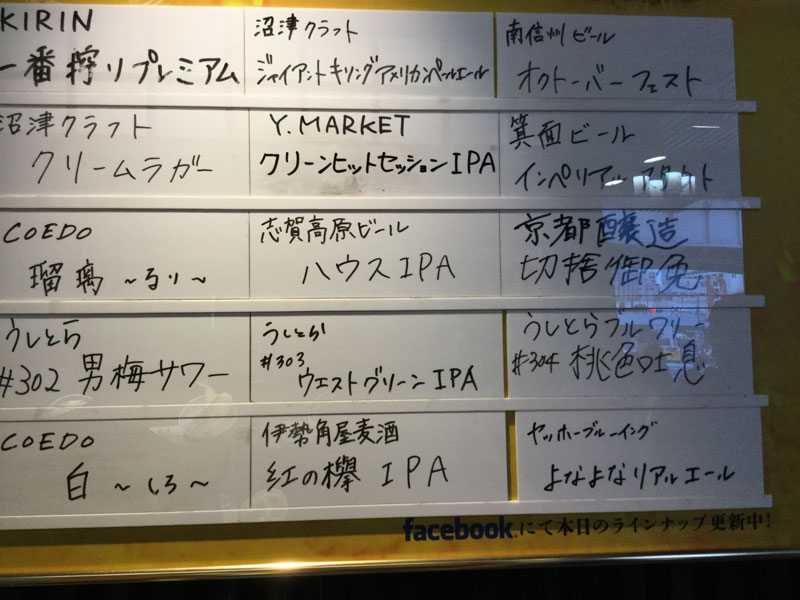 KIRIN
一番搾りプレミアム
沼津クラフト
ジャイアントキリングアメリカンペールエール
南信州ビール
オクトーバーフェスト
沼津クラフト
クリームラガー
Y.MARKET
クリーンヒットセッションIPA
箕面ビール
インペリアルスタウト
COEDO
瑠璃 ~るり~
志賀高原ビール
ハウスIPA
京都醸造
切捨御免
うしとら
#302 男梅サワー
うしとら
#303
ウエストグリーンIPA
うしとらブルワリー
#304 桃色吐息
COEDO
白 ~しろ~
伊勢角屋麦酒
紅の欅 IPA
ヤッホーブルーイング
よなよなリアルエール
facebook.にて本日のラインナップ更新中!